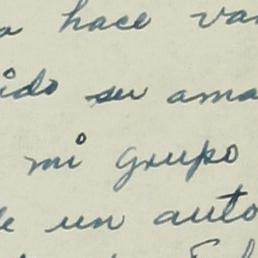 hace va
ido su ama
mi grupo
e un auto